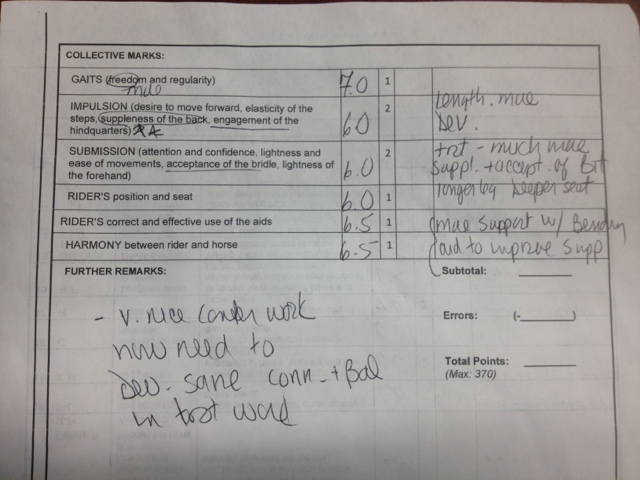 COLLECTIVE MARKS:
GAITS (freedom and regularity) 7.0 1
more
IMPULSION (desire to move forward, elasticity of the steps, suppleness of the back, engagement of the hindquarters) 60 2
Length. more
Dev.
SUBMISSION (attention and confidence, lightness and ease of movements, acceptance of the bridle, lightness of the forehand) 6.0 2
trot - much more
suppl. + accept. of Bit
RIDER'S position and seat 6.0 1
longer leg deeper seat
RIDER'S correct and effective use of the aids 6.5 1
more support w/ Bending
HARMONY between rider and horse 6.5 1
aid to improve supp
FURTHER REMARKS:
- v. nice canter work
now need to
Dev. same conn - + Bal
in trot work
Subtotal:
Errors: (- )
Total Points:
(Max: 370)